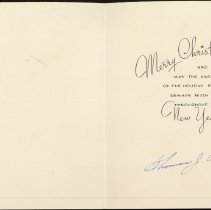 Merry Christ
AND
MAY THE HAP
OF THE HOLIDAY S
REMAIN WITH
THROUGHOUT
New Yea
Thomas J.